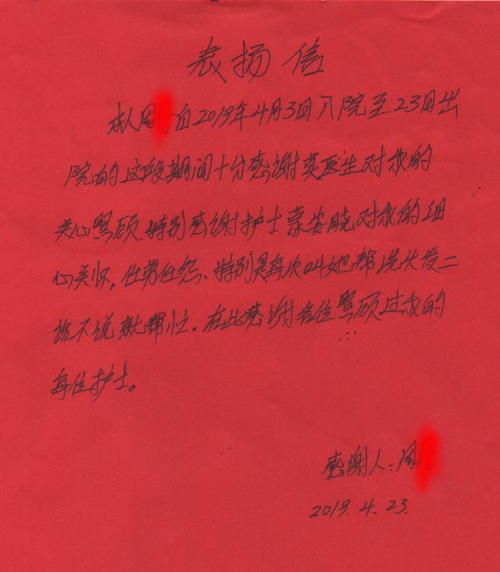 表扬信
本人周 自2019年4月3日入院至23日出
院的这段期间十分感谢莫医生对我的
关心照顾 特别感谢护士 对我的细
心关怀，任劳任怨、特别是每次叫她帮洗头发二
话不说就帮忙。在此感谢各位照顾过我的
每位护士。
感谢人：周
2019.4.23.